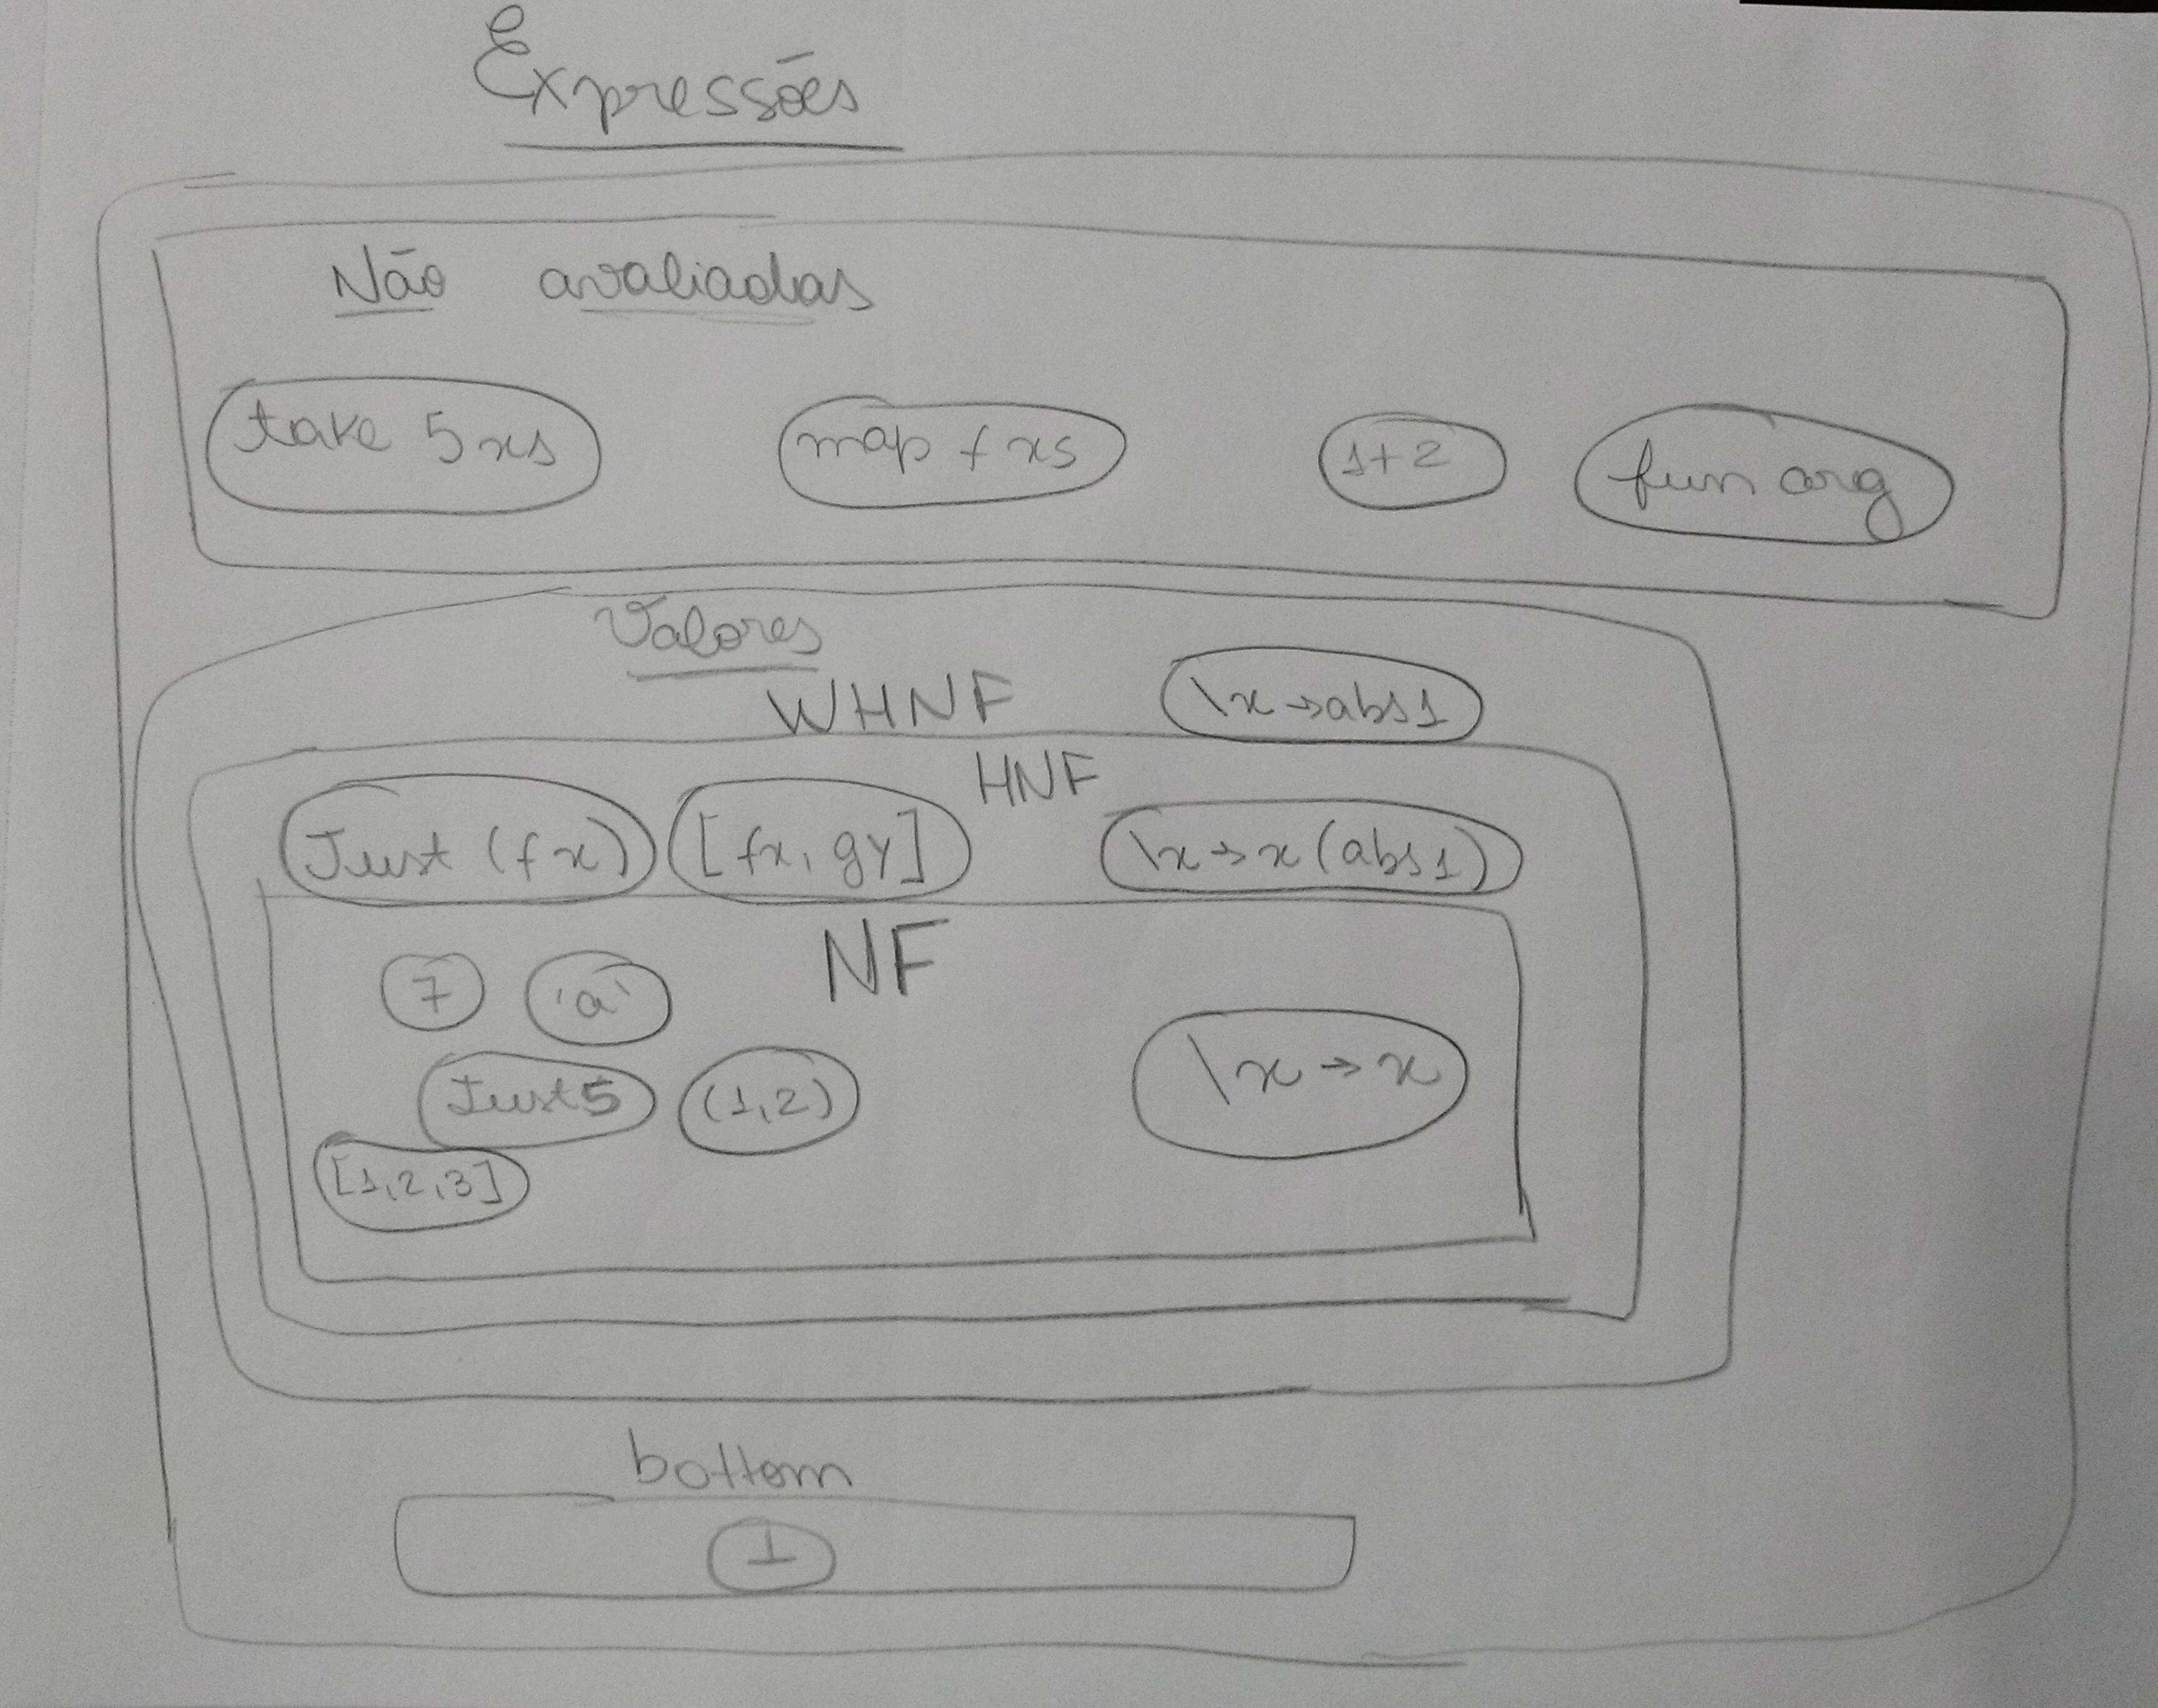 Expressões
Não avaliadas
take 5 xs map f xs 1+2 fun arg
Valores
WHNF \x→abs1
HNF
Just (f x) [fx, gy] \x→x(abs1)
NF
7 'a'
Just5 (1,2) \x→x
[1,2,3]
bottom
⊥